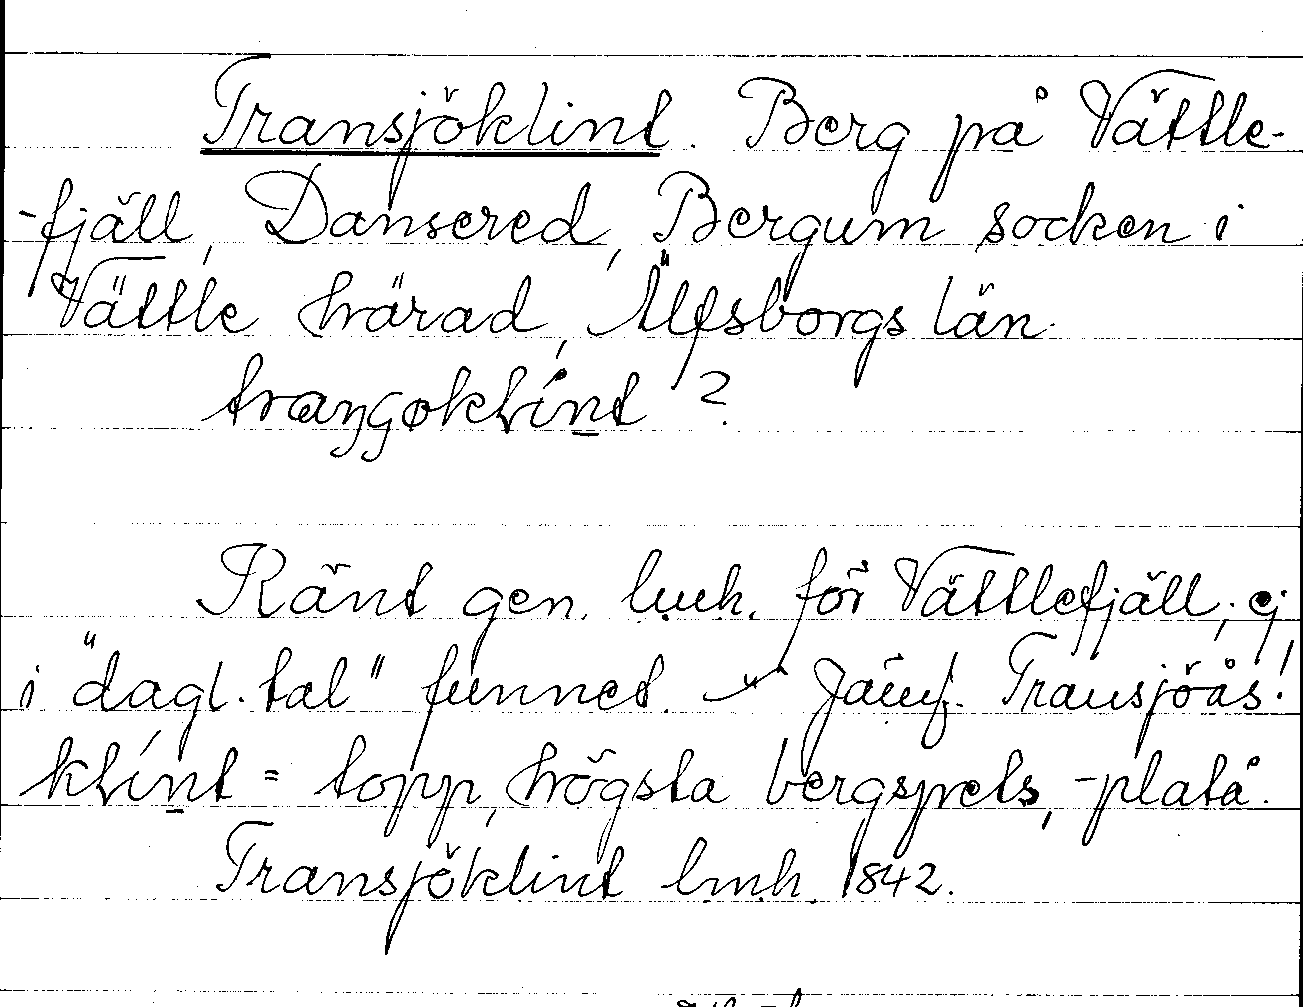 Transjöklint. Berg på Vättle-
-fjäll, Dansered, Bergum socken i
Vättle härad, Älfsborgs län.
traŋʒøklínt ?
Känt gen. lmh. för Vättlefjäll; ej
i "dagl. tal" funnet. Jämf. Transjöås!
klínt = topp, högsta bergspets, -platå.
Transjöklint lmh. 1842.